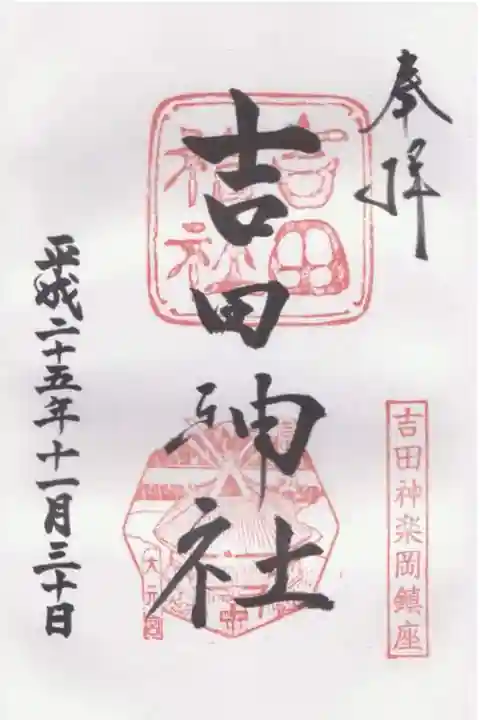 奉拝
吉田神楽岡鎮座
吉田神社
吉田神社
大元宮
平成二十五年十一月三十日